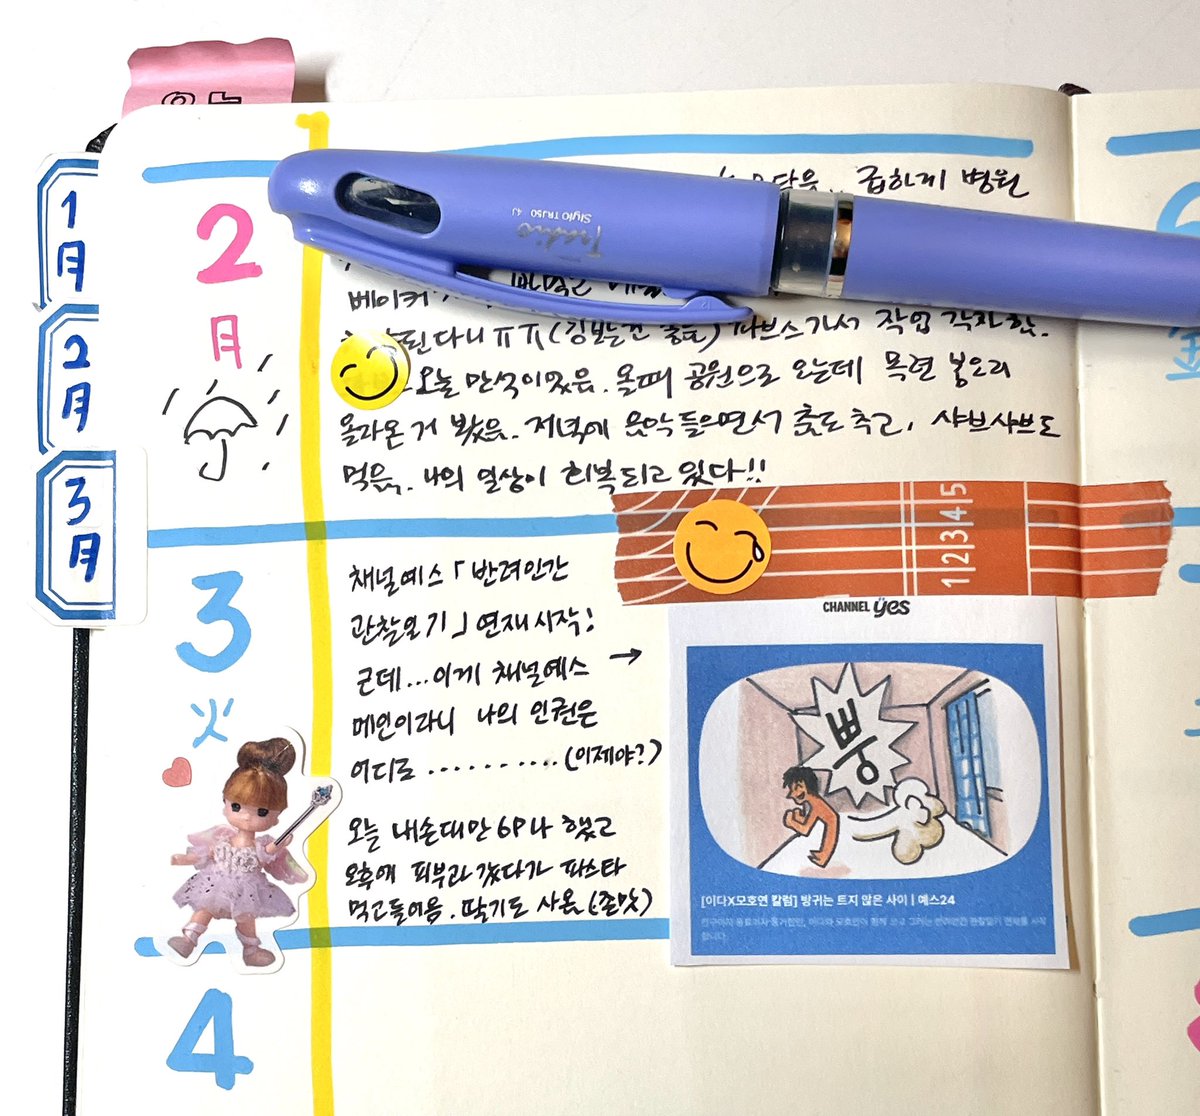 1
月
2
月
3
月
2
月
급하게 병원
베이커
된다니 ㅠㅠ(김보는건 좋음) 가서 작업 각자 함.
오늘 만석이었음. 올때 공원으로 오는데 목련 봉오리
올라온 거 봤음. 저녁에 음악 들으면서 춤도 추고, 샤브샤브도
먹음. 나의 일상이 회복되고 있다!!
Stylo TR150
12345
3
火
채널예스 「반려인간
관찰일기」 연재 시작!
근데...이게 채널예스 →
메인이라니 나의 인권은
어디로 ........... (이제야?)
오늘 내손대만 6P나 했고
오후에 피부과 갔다가 파스타
먹고 들어옴. 딸기도 사옴 (존맛)
CHANNEL yes
뿡
[이다X모호연 칼럼] 방귀는 트지 않은 사이 | 예스24
4